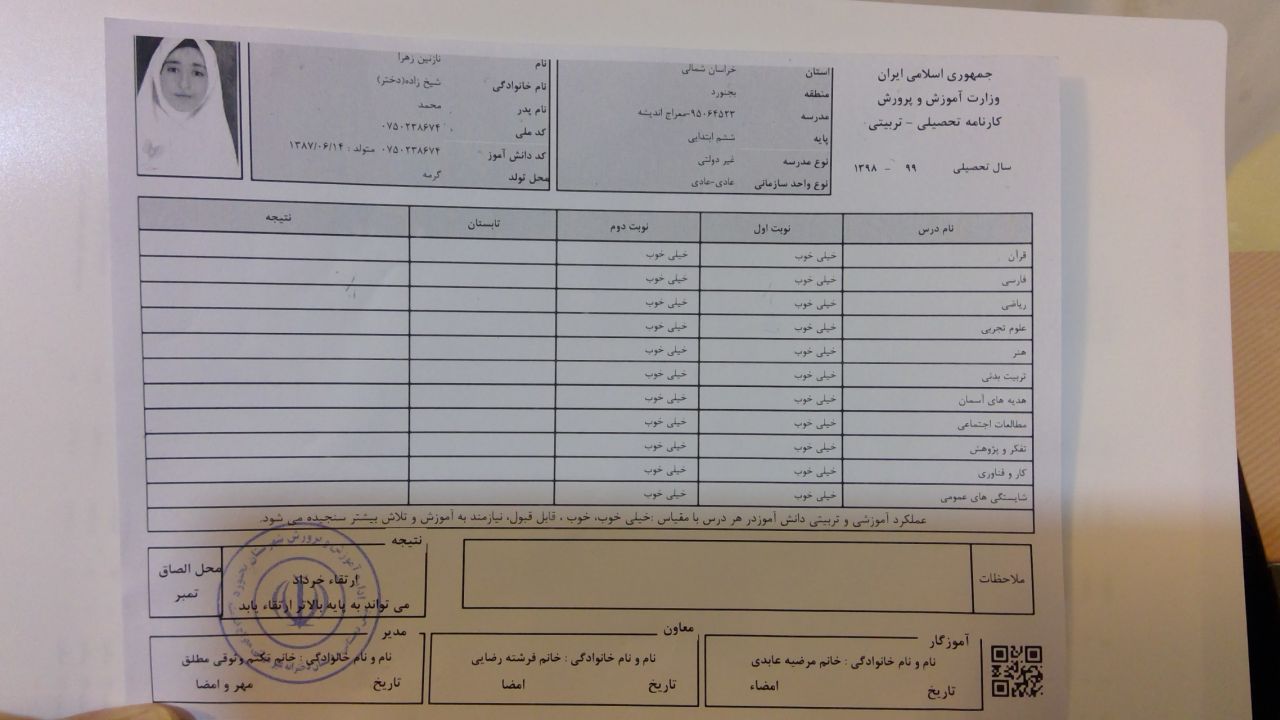 جمهوری اسلامی ایران
وزارت آموزش و پرورش
کارنامه تحصیلی - تربیتی
سال تحصیلی ۹۹ - ۱۳۹۸
استان خراسان شمالی
منطقه بجنورد
مدرسه ۹۵۰۶۴۵۲۳-معراج اندیشه
پایه ششم ابتدایی
نوع مدرسه غیر دولتی
نوع واحد سازمانی عادی-عادی
نام نازنین زهرا
نام خانوادگی شیخ زاده(دختر)
نام پدر محمد
کد ملی ۰۷۵۰۲۳۸۶۷۴
کد دانش آموز ۰۷۵۰۲۳۸۶۷۴ متولد : ۱۳۸۷/۰۶/۱۴
محل تولد گرمه
نام درس نوبت اول نوبت دوم تابستان نتیجه
قرآن خیلی خوب خیلی خوب
فارسی خیلی خوب خیلی خوب
ریاضی خیلی خوب خیلی خوب
علوم تجربی خیلی خوب خیلی خوب
هنر خیلی خوب خیلی خوب
تربیت بدنی خیلی خوب خیلی خوب
هدیه های آسمان خیلی خوب خیلی خوب
مطالعات اجتماعی خیلی خوب خیلی خوب
تفکر و پژوهش خیلی خوب خیلی خوب
کار و فناوری خیلی خوب خیلی خوب
شایستگی های عمومی خیلی خوب خیلی خوب
عملکرد آموزشی و تربیتی دانش آموزدر هر درس با مقیاس :خیلی خوب، خوب ، قابل قبول، نیازمند به آموزش و تلاش بیشتر سنجیده می شود.
ملاحظات
نتیجه
ارتقاء خرداد
می تواند به پایه بالاتر ارتقاء یابد
محل الصاق
تمبر
آموزگار
نام و نام خانوادگی : خانم مرضیه عابدی
تاریخ امضاء
معاون
نام و نام خانوادگی : خانم فرشته رضایی
تاریخ امضا
مدیر
نام و نام خانوادگی : خانم تکتم وثوقی مطلق
تاریخ مهر و امضا
اداره آموزش و پرورش شهرستان بجنورد